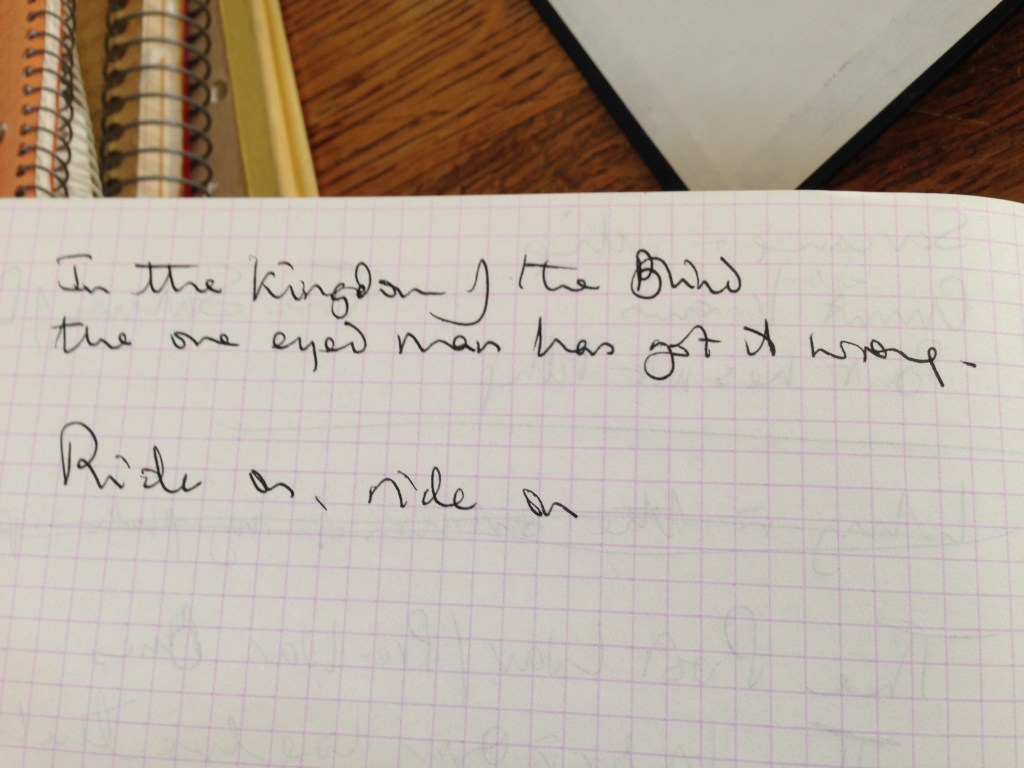 In the Kingdom of the Blind
the one eyed man has got it wrong.
Ride on, ride on